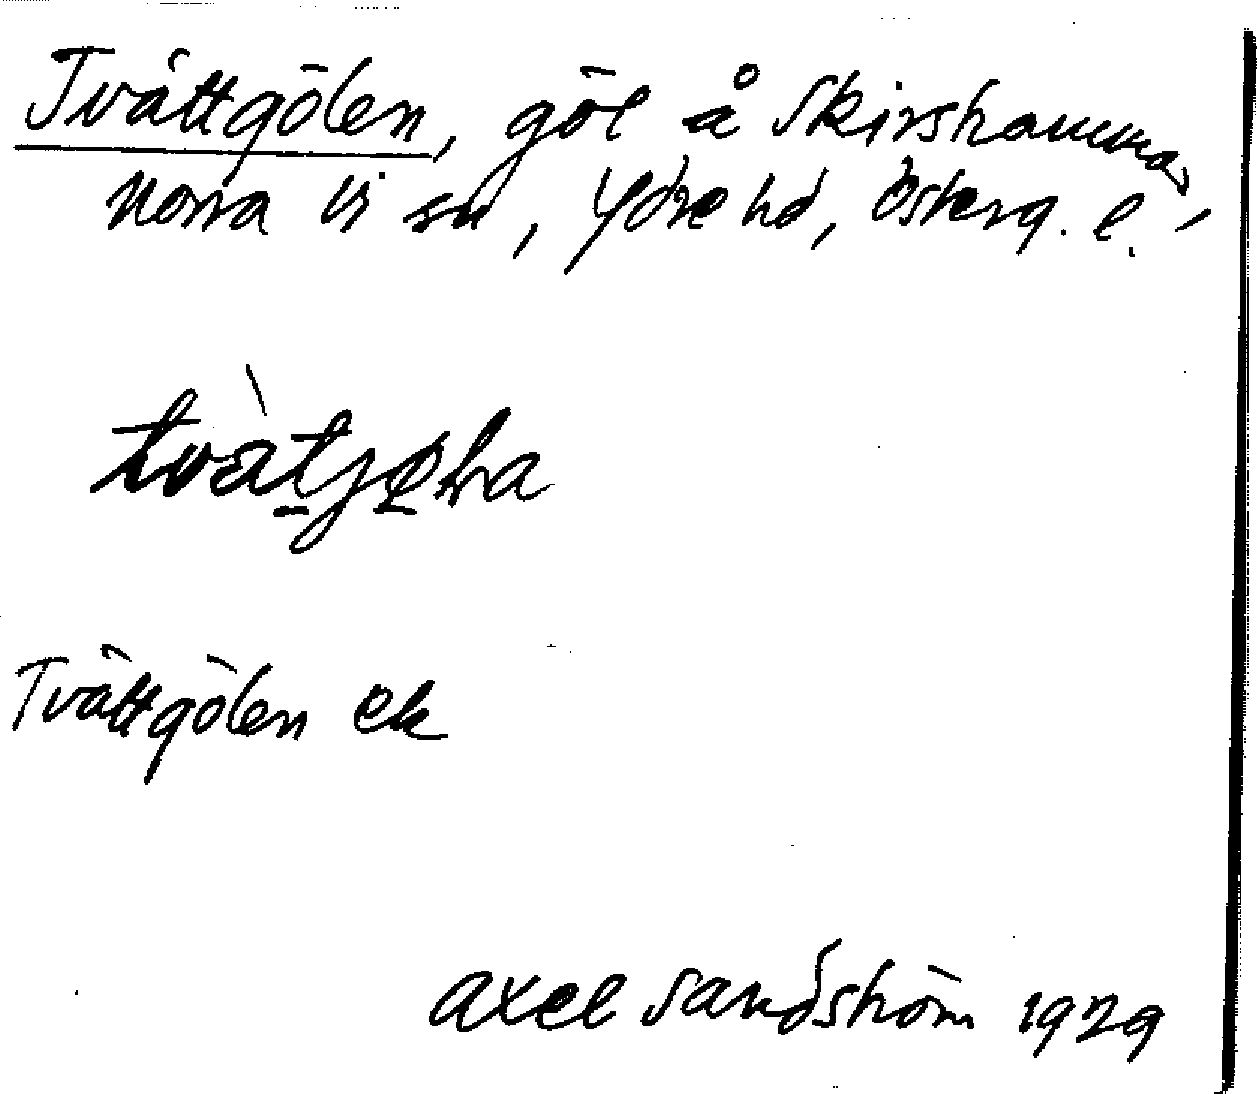 Tvättgölen, göl å Skirshamma,
Norra Vi sn, Ydre hd, Österg. l.
Tvättgölen ek
Axel Sandström 1929